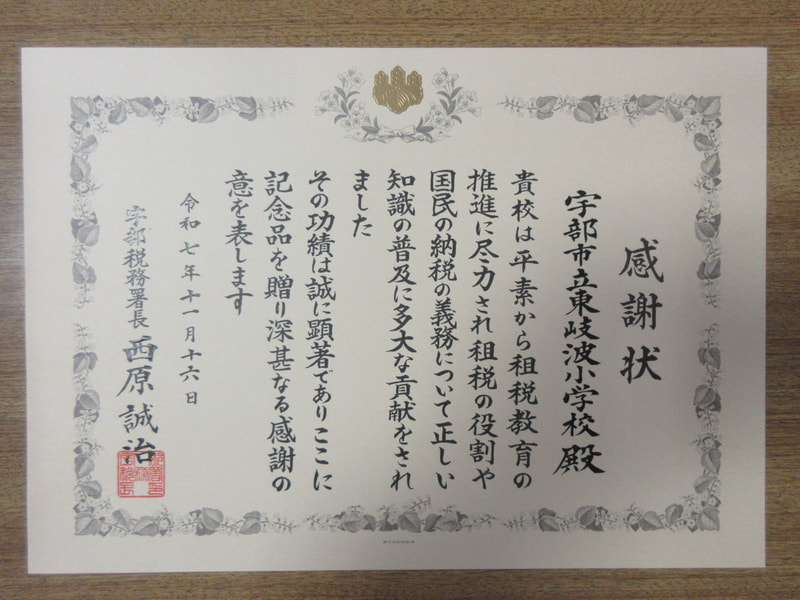 感謝状
宇部市立東岐波小学校殿
貴校は平素から租税教育の
推進に尽力され租税の役割や
国民の納税の義務について正しい
知識の普及に多大な貢献をされ
ました
その功績は誠に顕著でありここに
記念品を贈り深甚なる感謝の
意を表します
令和七年十一月十六日
宇部税務署長 西原誠治